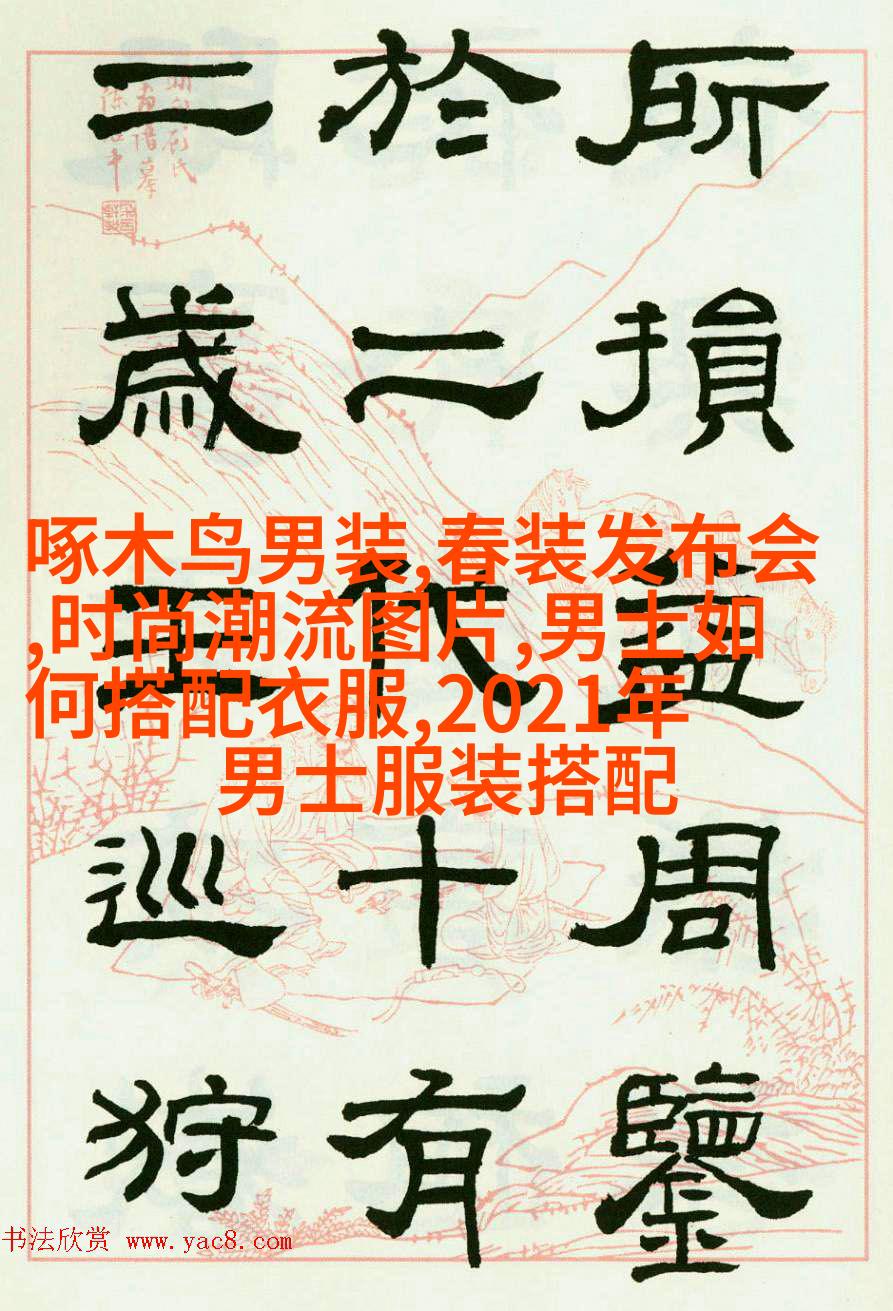 所損益周鑒
於二代十有
二歲王巡狩
啄木鸟男装,春装发布会
,时尚潮流图片,男士如
何搭配衣服,2021年
男士服装搭配
书法欣赏 www.yac8.com